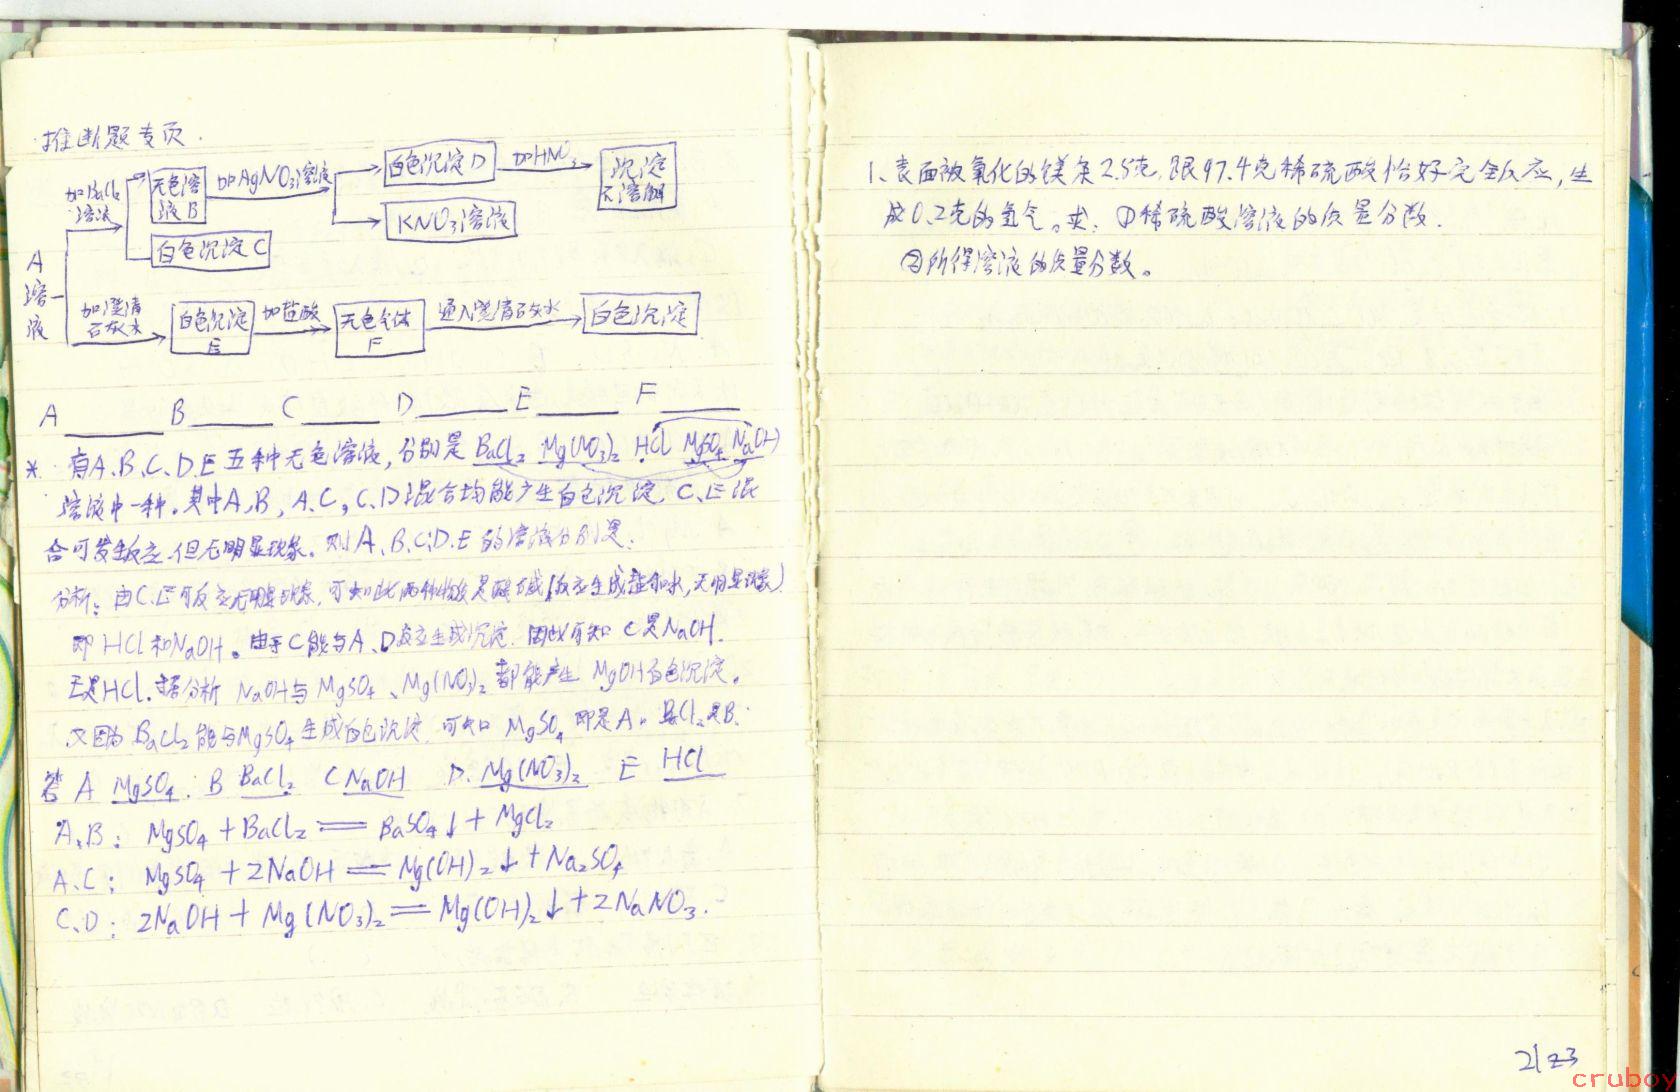 推断题专页.
加BaCl₂溶液
无色溶液B
加AgNO₃溶液
白色沉淀D
加HNO₃
沉淀不溶解
KNO₃溶液
白色沉淀C
A溶液
加澄清石灰水
白色沉淀E
加盐酸
无色气体F
通入澄清石灰水
白色沉淀
A____ B____ C____ D____ E____ F____
* 有A.B.C.D.E五种无色溶液,分别是BaCl₂ Mg(NO₃)₂ HCl MgSO₄ NaOH
溶液中一种。其中A,B, A.C, C.D混合均能产生白色沉淀, C、E混
合可发生反应,但无明显现象。则A、B、C、D、E的溶液分别是:
分析:由C.E可反应无明显现象,可知此两种物质是酸和碱(反应生成盐和水,无明显现象)
即HCl和NaOH。由于C能与A、D反应生成沉淀.因此可知C是NaOH.
E是HCl.分析 NaOH与MgSO₄、Mg(NO₃)₂都能产生MgOH白色沉淀。
又因为BaCl₂能与MgSO₄生成白色沉淀,可知MgSO₄即是A。BaCl₂是B.
答 A MgSO₄. B BaCl₂ C NaOH D. Mg(NO₃)₂ E HCl
A.B: MgSO₄+BaCl₂══BaSO₄↓+MgCl₂
A.C: MgSO₄+2NaOH══Mg(OH)₂↓+Na₂SO₄
C.D: 2NaOH+Mg(NO₃)₂══Mg(OH)₂↓+2NaNO₃.
1、表面被氧化的镁条2.5克,跟97.4克稀硫酸恰好完全反应,生
成0.2克的氢气。求:①稀硫酸溶液的质量分数.
②所得溶液的质量分数。
21z3
cruboy